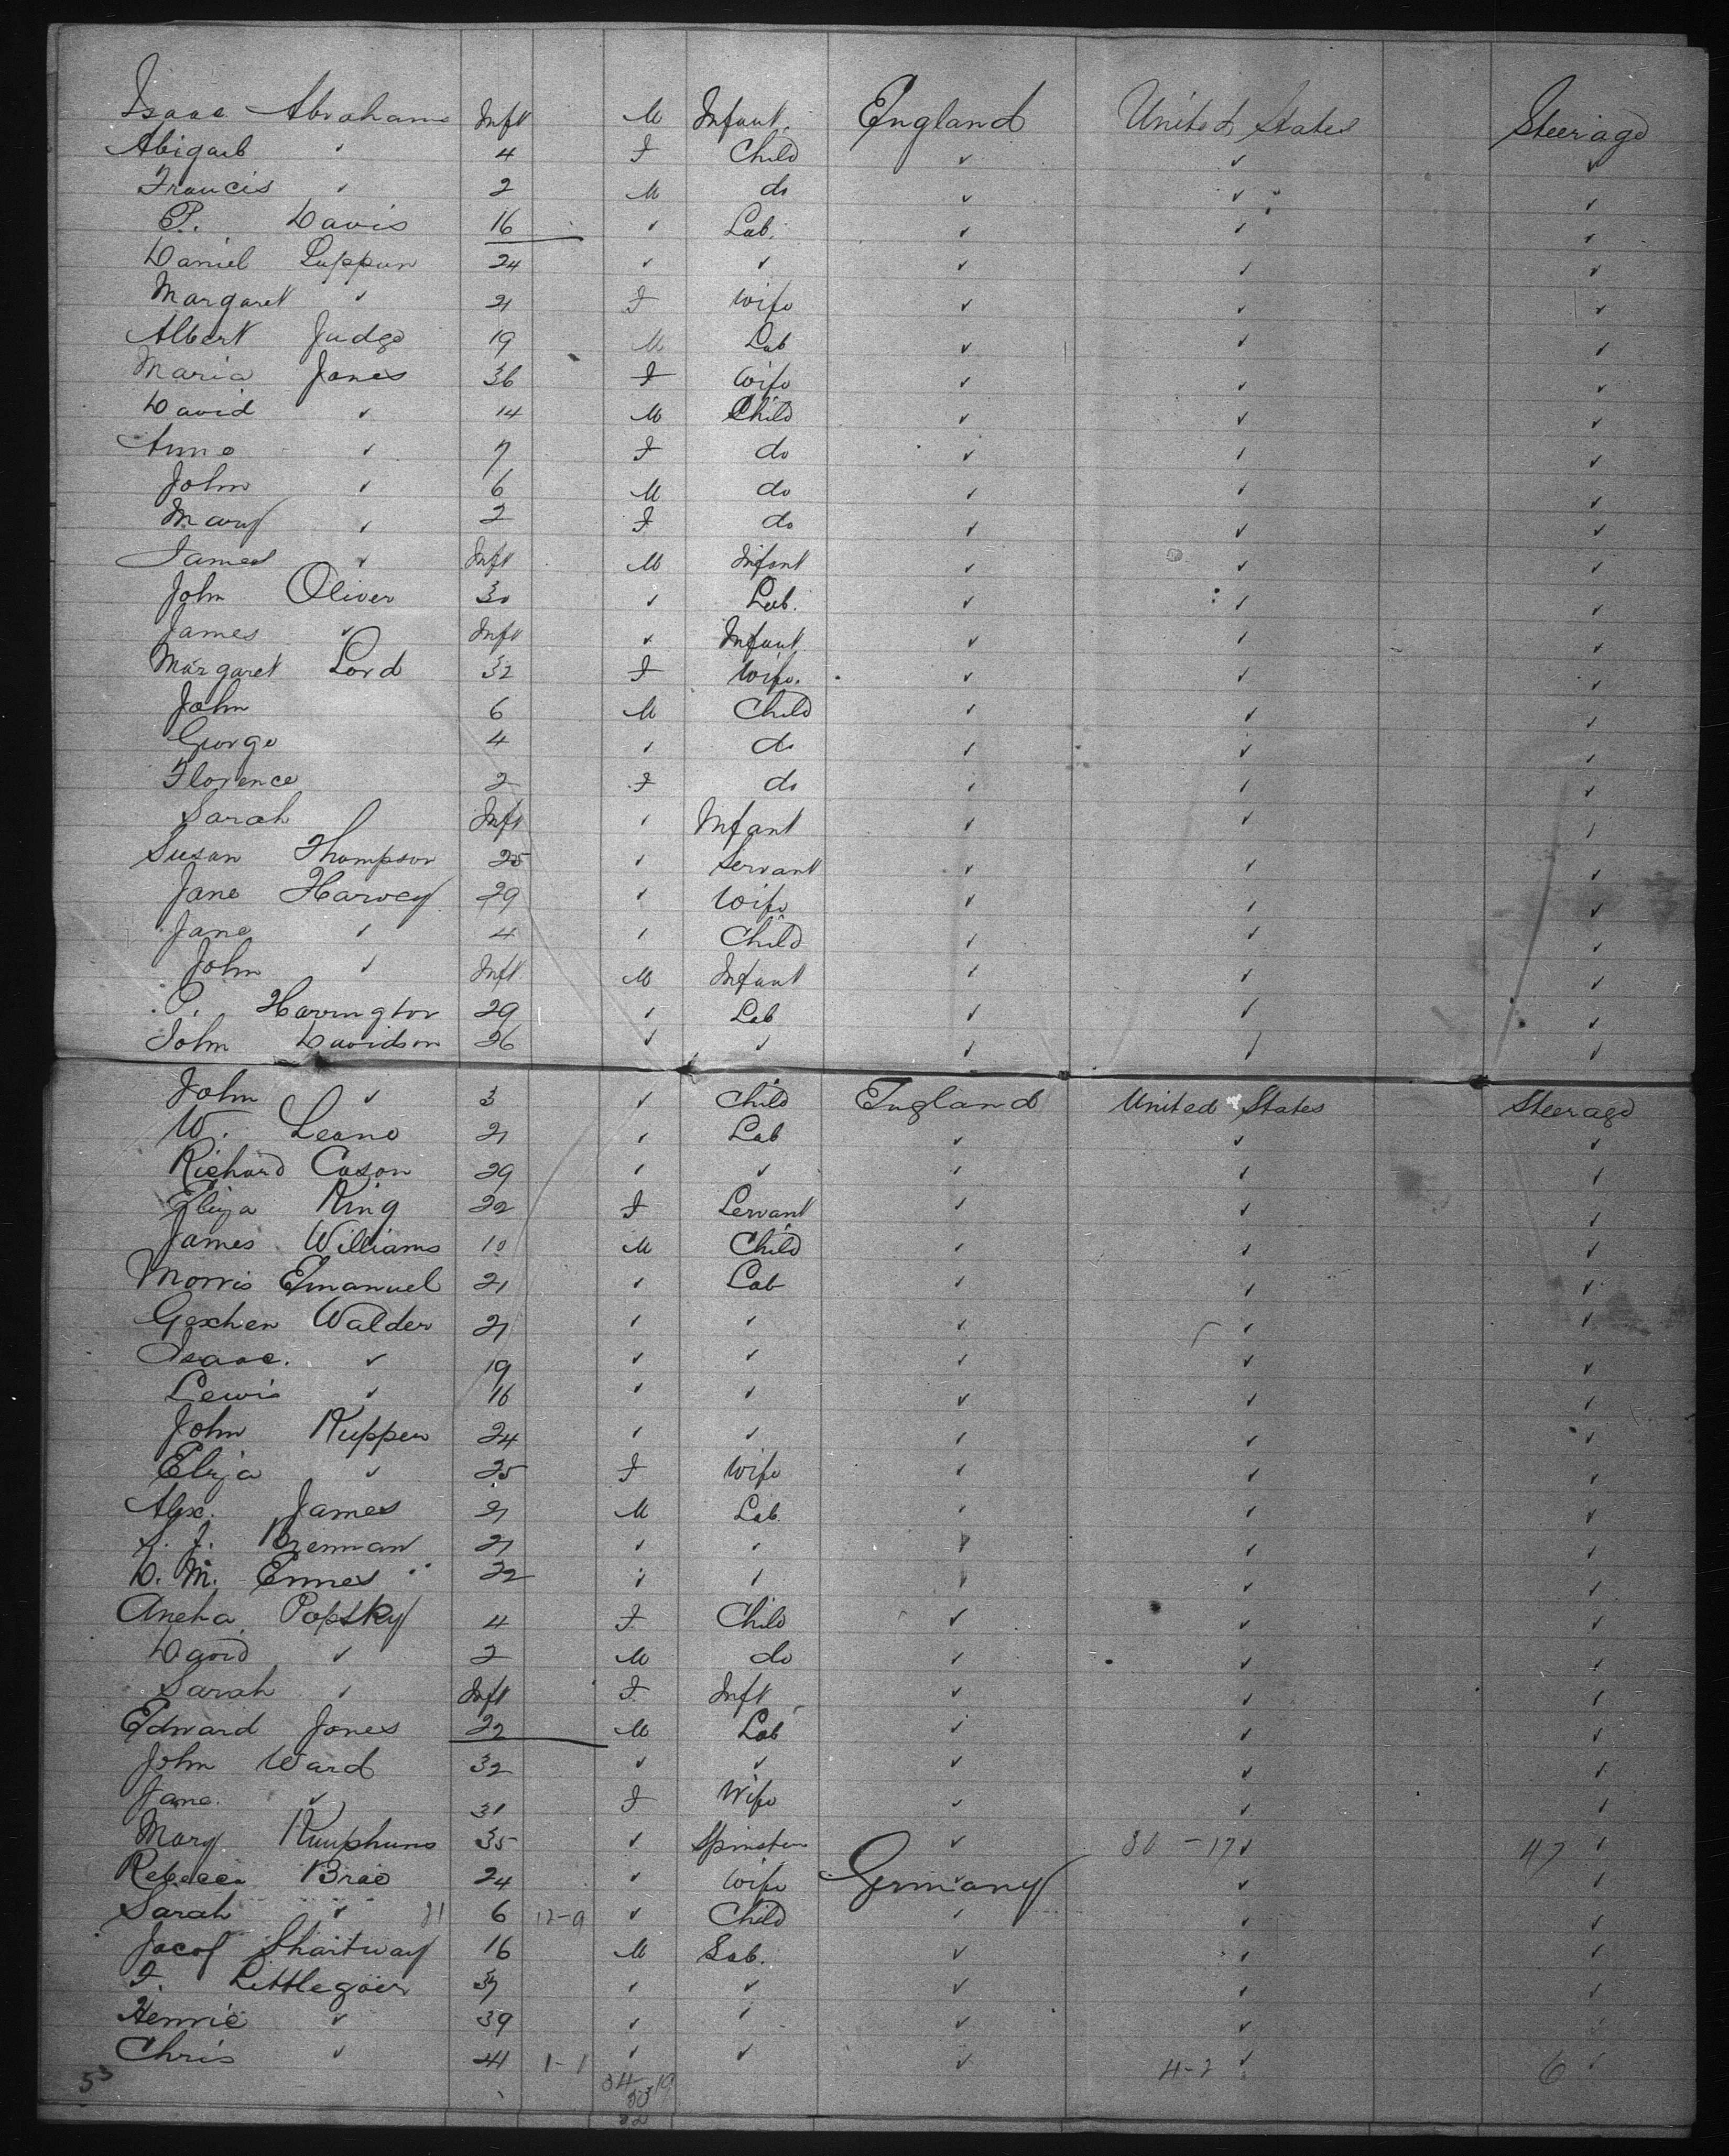 Isaac Abrahams Inft M Infant. England United States Steerage
Abigail " 4 F Child " " "
Francis " 2 M do " " "
P. Davis 16 " Lab. " " "
Daniel Luppun 24 " " " " "
Margaret " 21 F Wife " " "
Albert Judge 19 M Lab " " "
Maria Jones 36 F Wife " " "
David " 14 M Child " " "
Anne " 7 F do " " "
John " 6 M do " " "
Mary " 2 F do " " "
James " Inft M Infant " " "
John Oliver 30 " Lab. " " "
James " Inft " Infant " " "
Margaret Lord 32 F Wife. " " "
John 6 M Child " " "
George 4 " do " " "
Florence 2 F do " " "
Sarah Inft " Infant " " "
Susan Thompson 25 " Servant " " "
Jane Harvey 29 " Wife " " "
Jane " 4 " Child " " "
John " Inft M Infant " " "
P. Harrington 29 " Lab " " "
John Davidson 26 " " " " "
John " 3 " Child England United States Steerage
W. Leano 21 " Lab " " "
Richard Cason 29 " " " " "
Eliza King 22 F Servant " " "
James Williams 10 M Child " " "
Morris Emanuel 21 " Lab " " "
Gexhen Walder 21 " " " " "
Isaac. " 19 " " " " "
Lewis " 16 " " " " "
John Kuppen 24 " " " " "
Eliza " 25 F Wife " " "
Alex. James 21 M Lab. " " "
S. J. Brennan 21 " " " " "
D. M. Ennes 22 " " " " "
Aneha Popsky 4 F Child " " "
David " 2 M do " " "
Sarah " Inft F Inft " " "
Edward Jones 22 M Lab " " "
John Ward 32 " " " " "
Jane. " 31 F Wife " " "
Mary 35 " Spinster " 30-17 " 47 "
Rebecca Brae 24 " Wife Germany " "
Sarah " 21 6 12-9 " Child " " "
Jacof Shartway 16 M Lab. " " "
F. Littlegoer 37 " " " " "
Henrie " 39 " " " " "
Chris " 41 1-1 " " " 4-2 " 6 "
53 34 19